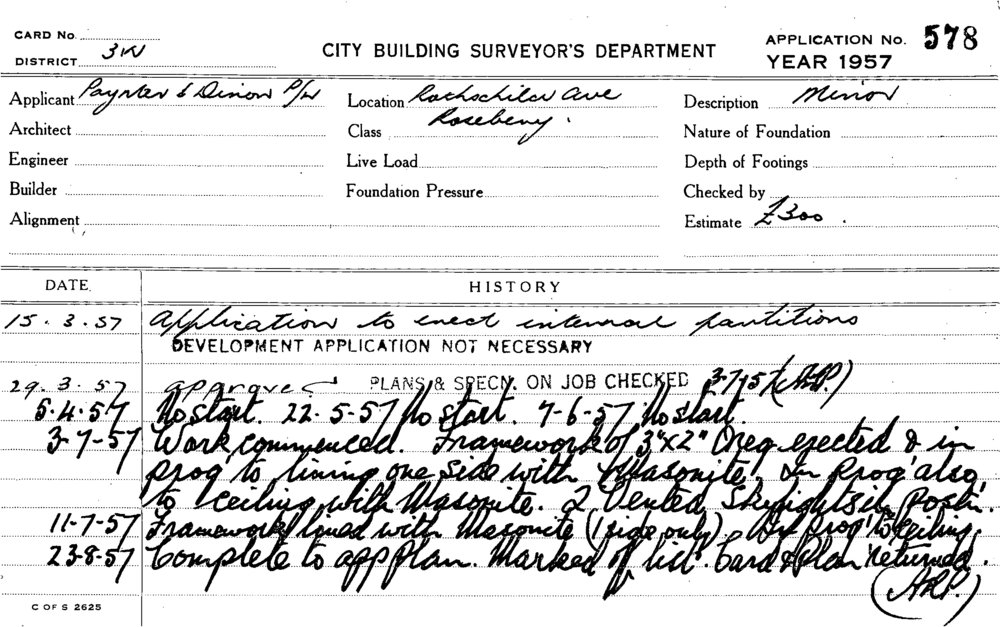 CARD No.
DISTRICT 3W
CITY BUILDING SURVEYOR'S DEPARTMENT
APPLICATION No. 578
YEAR 1957
Applicant Paynter & Dixon P/L
Location Rothschild Ave
Rosebery.
Description Minor
Architect
Class
Nature of Foundation
Engineer
Live Load
Depth of Footings
Builder
Foundation Pressure
Checked by
Alignment
Estimate £300.
DATE
HISTORY
15.3.57 Application to erect internal partitions
DEVELOPMENT APPLICATION NOT NECESSARY
29.3.57 approved PLANS & SPECN. ON JOB CHECKED 3-7-57 (ARP.)
5.4.57 No start. 22.5-57 No start. 7-6-57 No start.
3-7-57 Work commenced. Framework of 3"x2" Oreg. erected & in
prog' to lining one side with Masonite. In prog' also,
to ceiling with Masonite. 2 Vented Skylights in Postn.
11-7-57 Framework lined with Masonite (1 side only). In prog' to ceiling.
23-8-57 Complete to app plan. Marked of list. Card & Plan returned.
(ARP.)
C OF S 2625